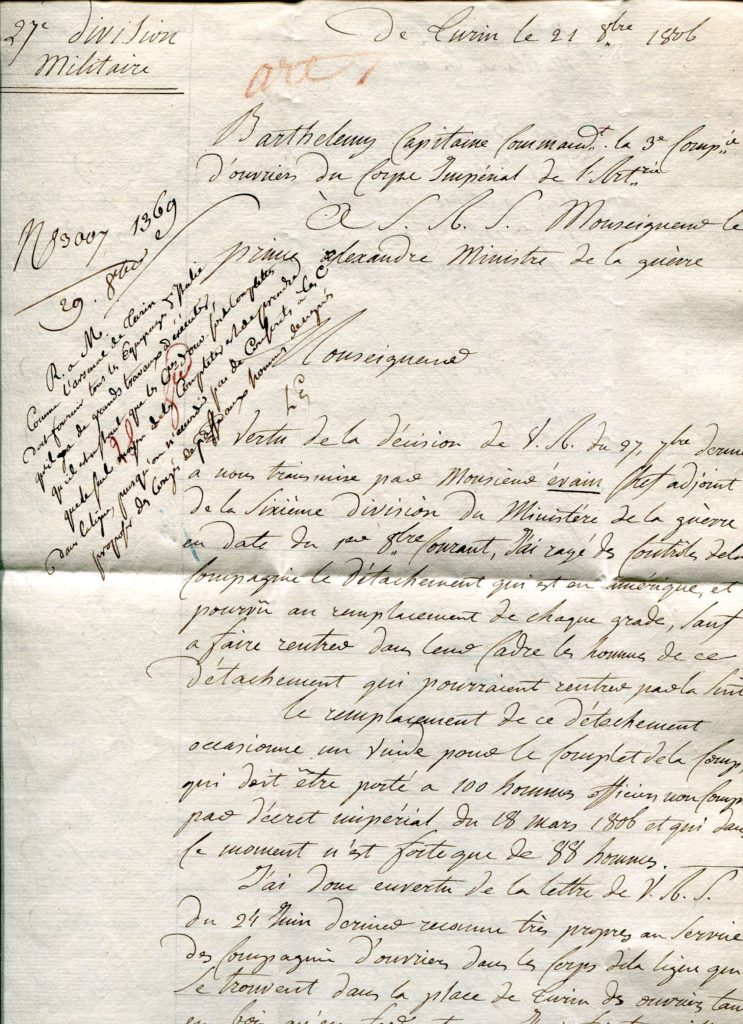 27e division
Militaire
De Turin le 21 8bre 1806
art
Barthelemy Capitaine Command.t la 3e Comp.ie
d'ouvriers du Corps Impérial de l'Art.rie
À S. A. S. Monseigneur le
prince alexandre Ministre de la guèrre
N 83007 1369
29. 8bre
R. a M.
Comme l'arsenal de Turin
doit fournir tous les Equipages d'Italie
qu'il y a de grands travaux à éxécuter,
qu'il est instant que les Cies d'ouv. soit Completes
que le seul moyen de les Completer est de prendre
dans la ligne, puisqu'on n'accorde pas de Conscrits à les Cies
proposer des Congés de passe aux hommes designés
Monseigneur
Vertu de la décision de V. A. du 27, 7bre dernier
a nous transmise par Monsieur évain Chef adjoint
de la Sixième division du Ministère de la guèrre
en date du 1er 8bre Courant, J'ai rayé des Contrôles de la
Compagnie le détachement qui est en amérique, et
pourvû au remplacement de chaque grade, Sauf
a faire rentrer dans leur Cadre les hommes de ce
détachement qui pourraient rentrer par la Suit
le remplacement de ce détachement
occasionne un Vuide pour le Complet de la Comp
qui doit être porté a 100 hommes officiers non Comp
par décret impérial du 18 mars 1806 et qui dans
le moment n'est forte que de 88 hommes.
J'ai donc en vertu de la lettre de V. A. S.
du 24 Juin dernier reconnu très propres au Service
des Compagnies d'ouvriers dans les Corps de la ligne qui
Se trouvent dans la place de Turin des ouvriers tant
en bois qu'en